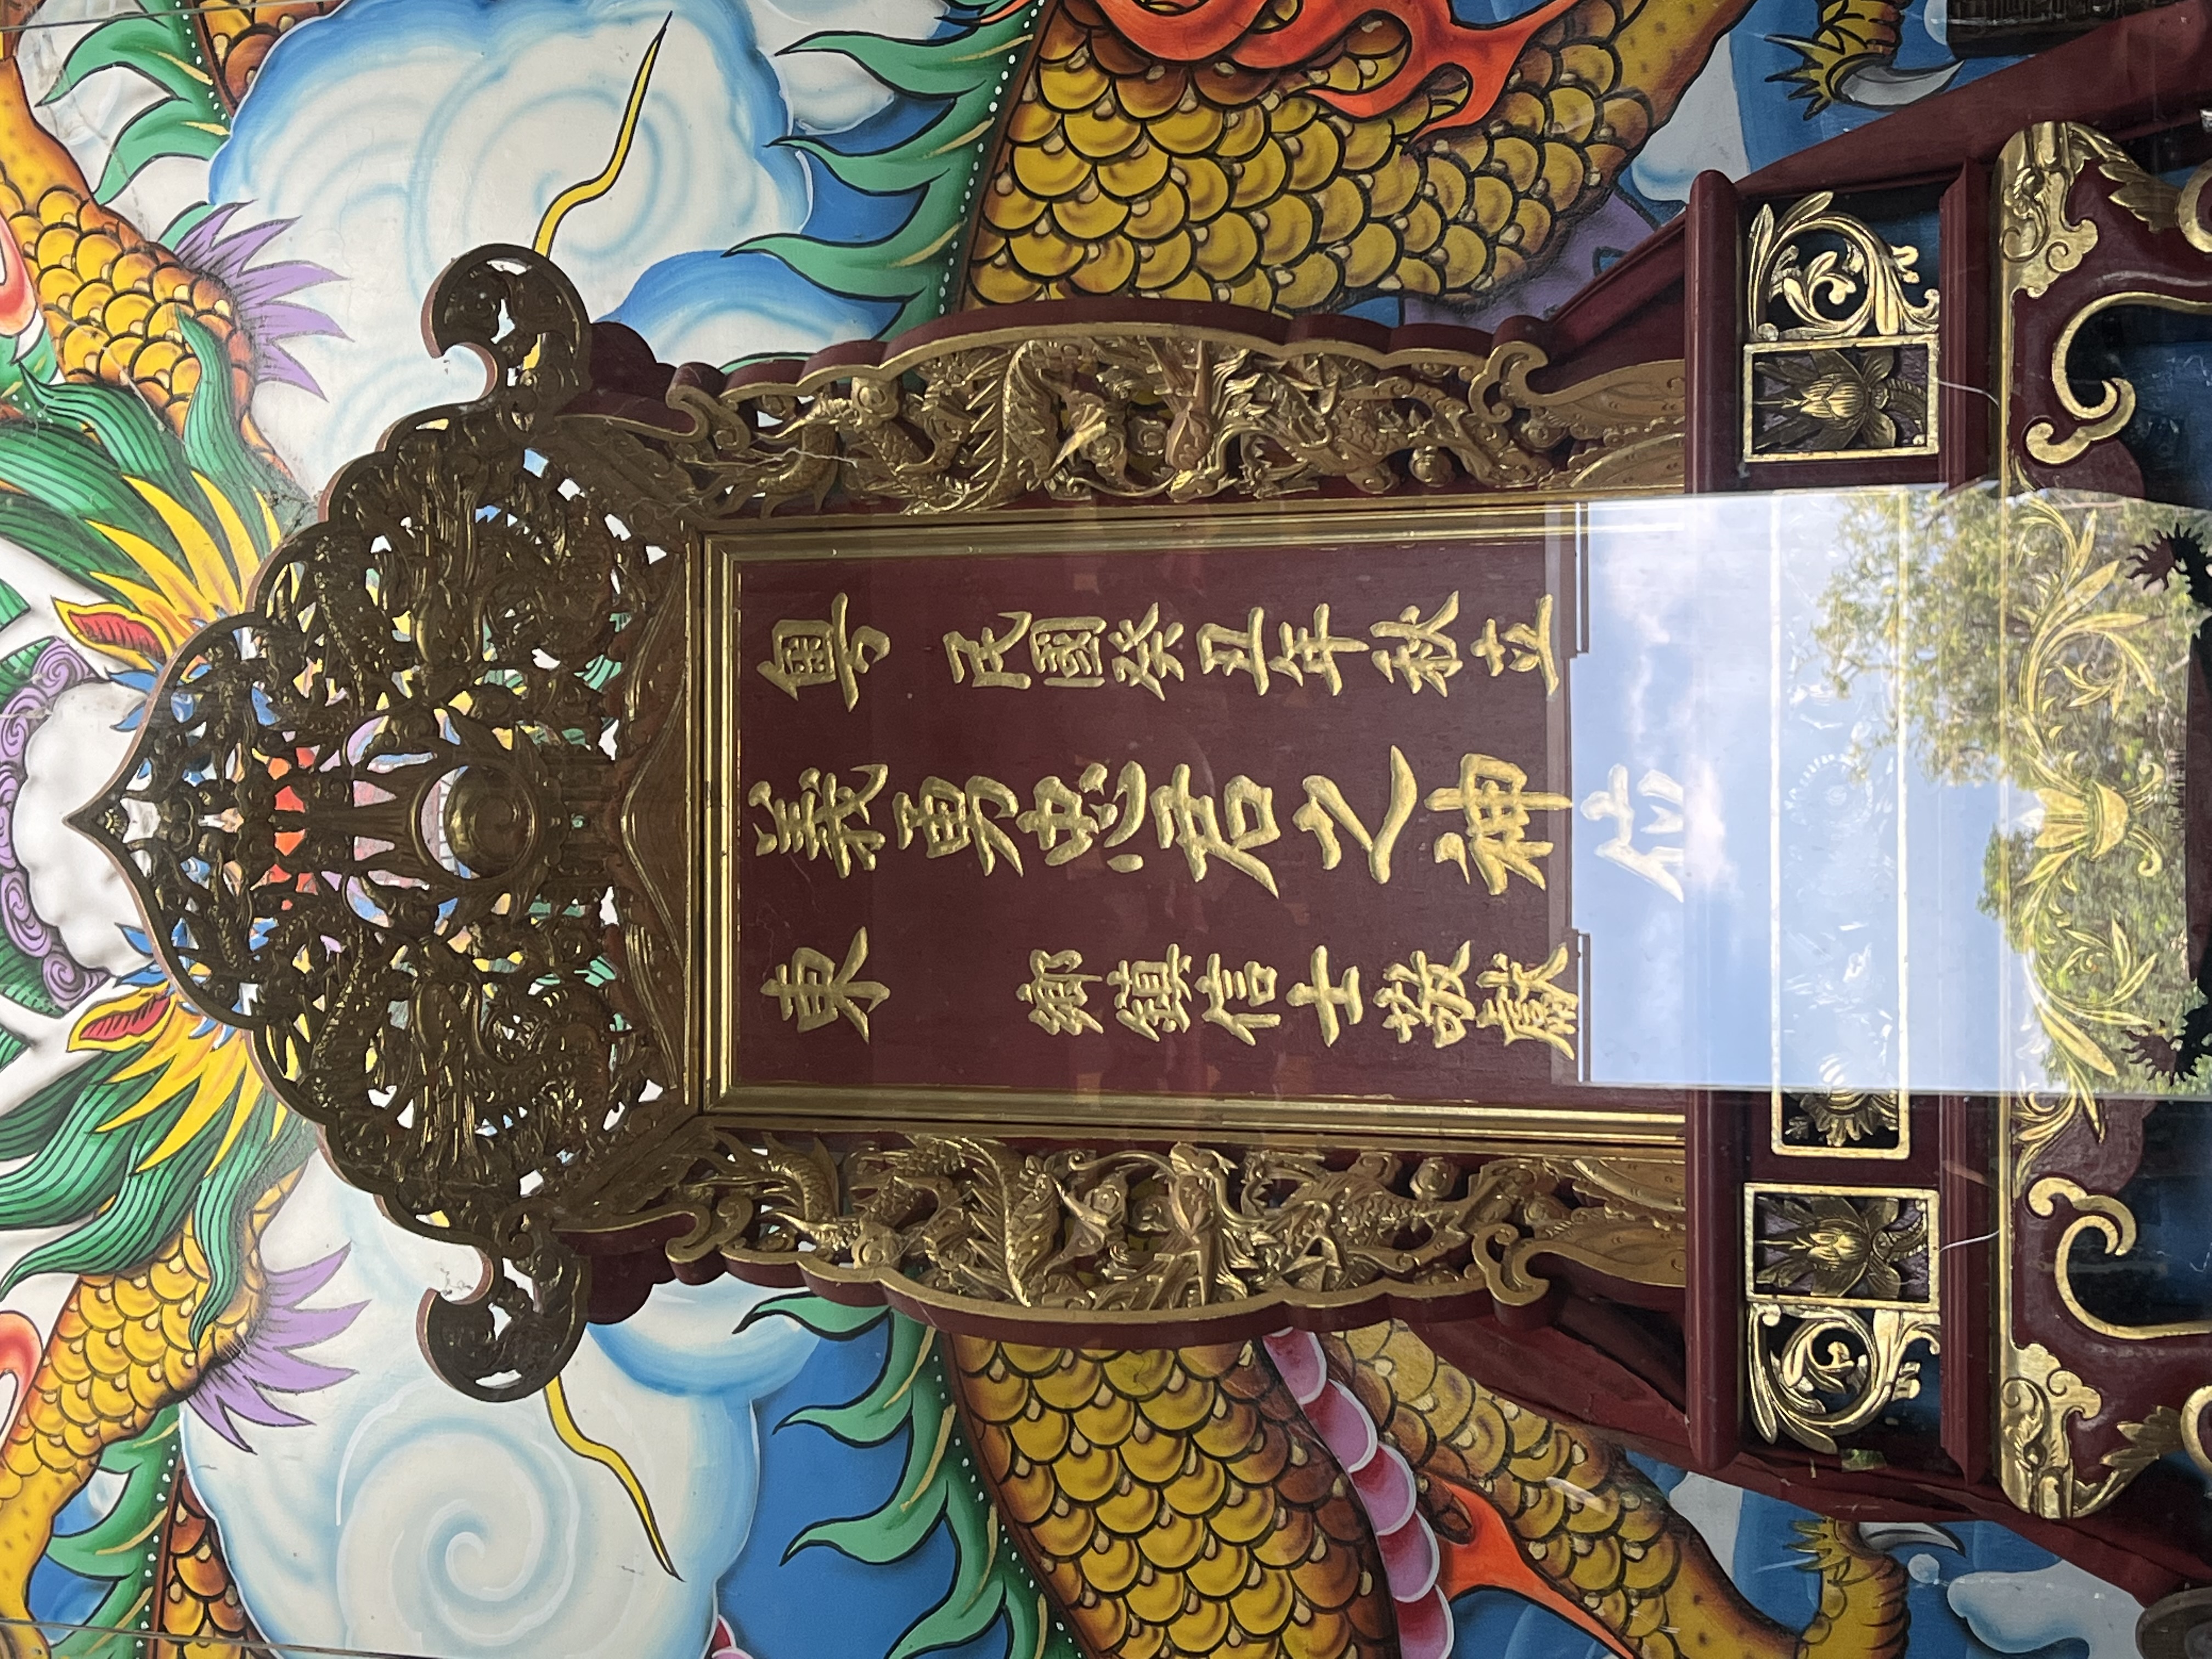 粵東
民國癸丑年秋立
義勇忠君之神位
鄉鎮信士敬獻